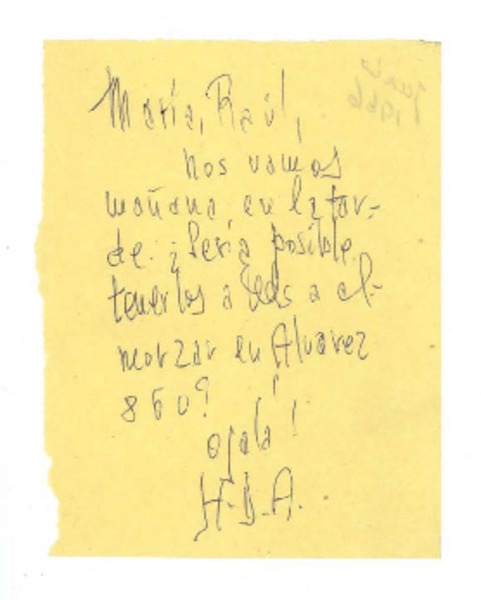 María, Raúl,
nos vamos
mañana en la tar-
de. ¿Sería posible
tenerlos a Uds a al-
morzar en Alvarez
860?
¡ojalá!
H.D.A.
junio
1966